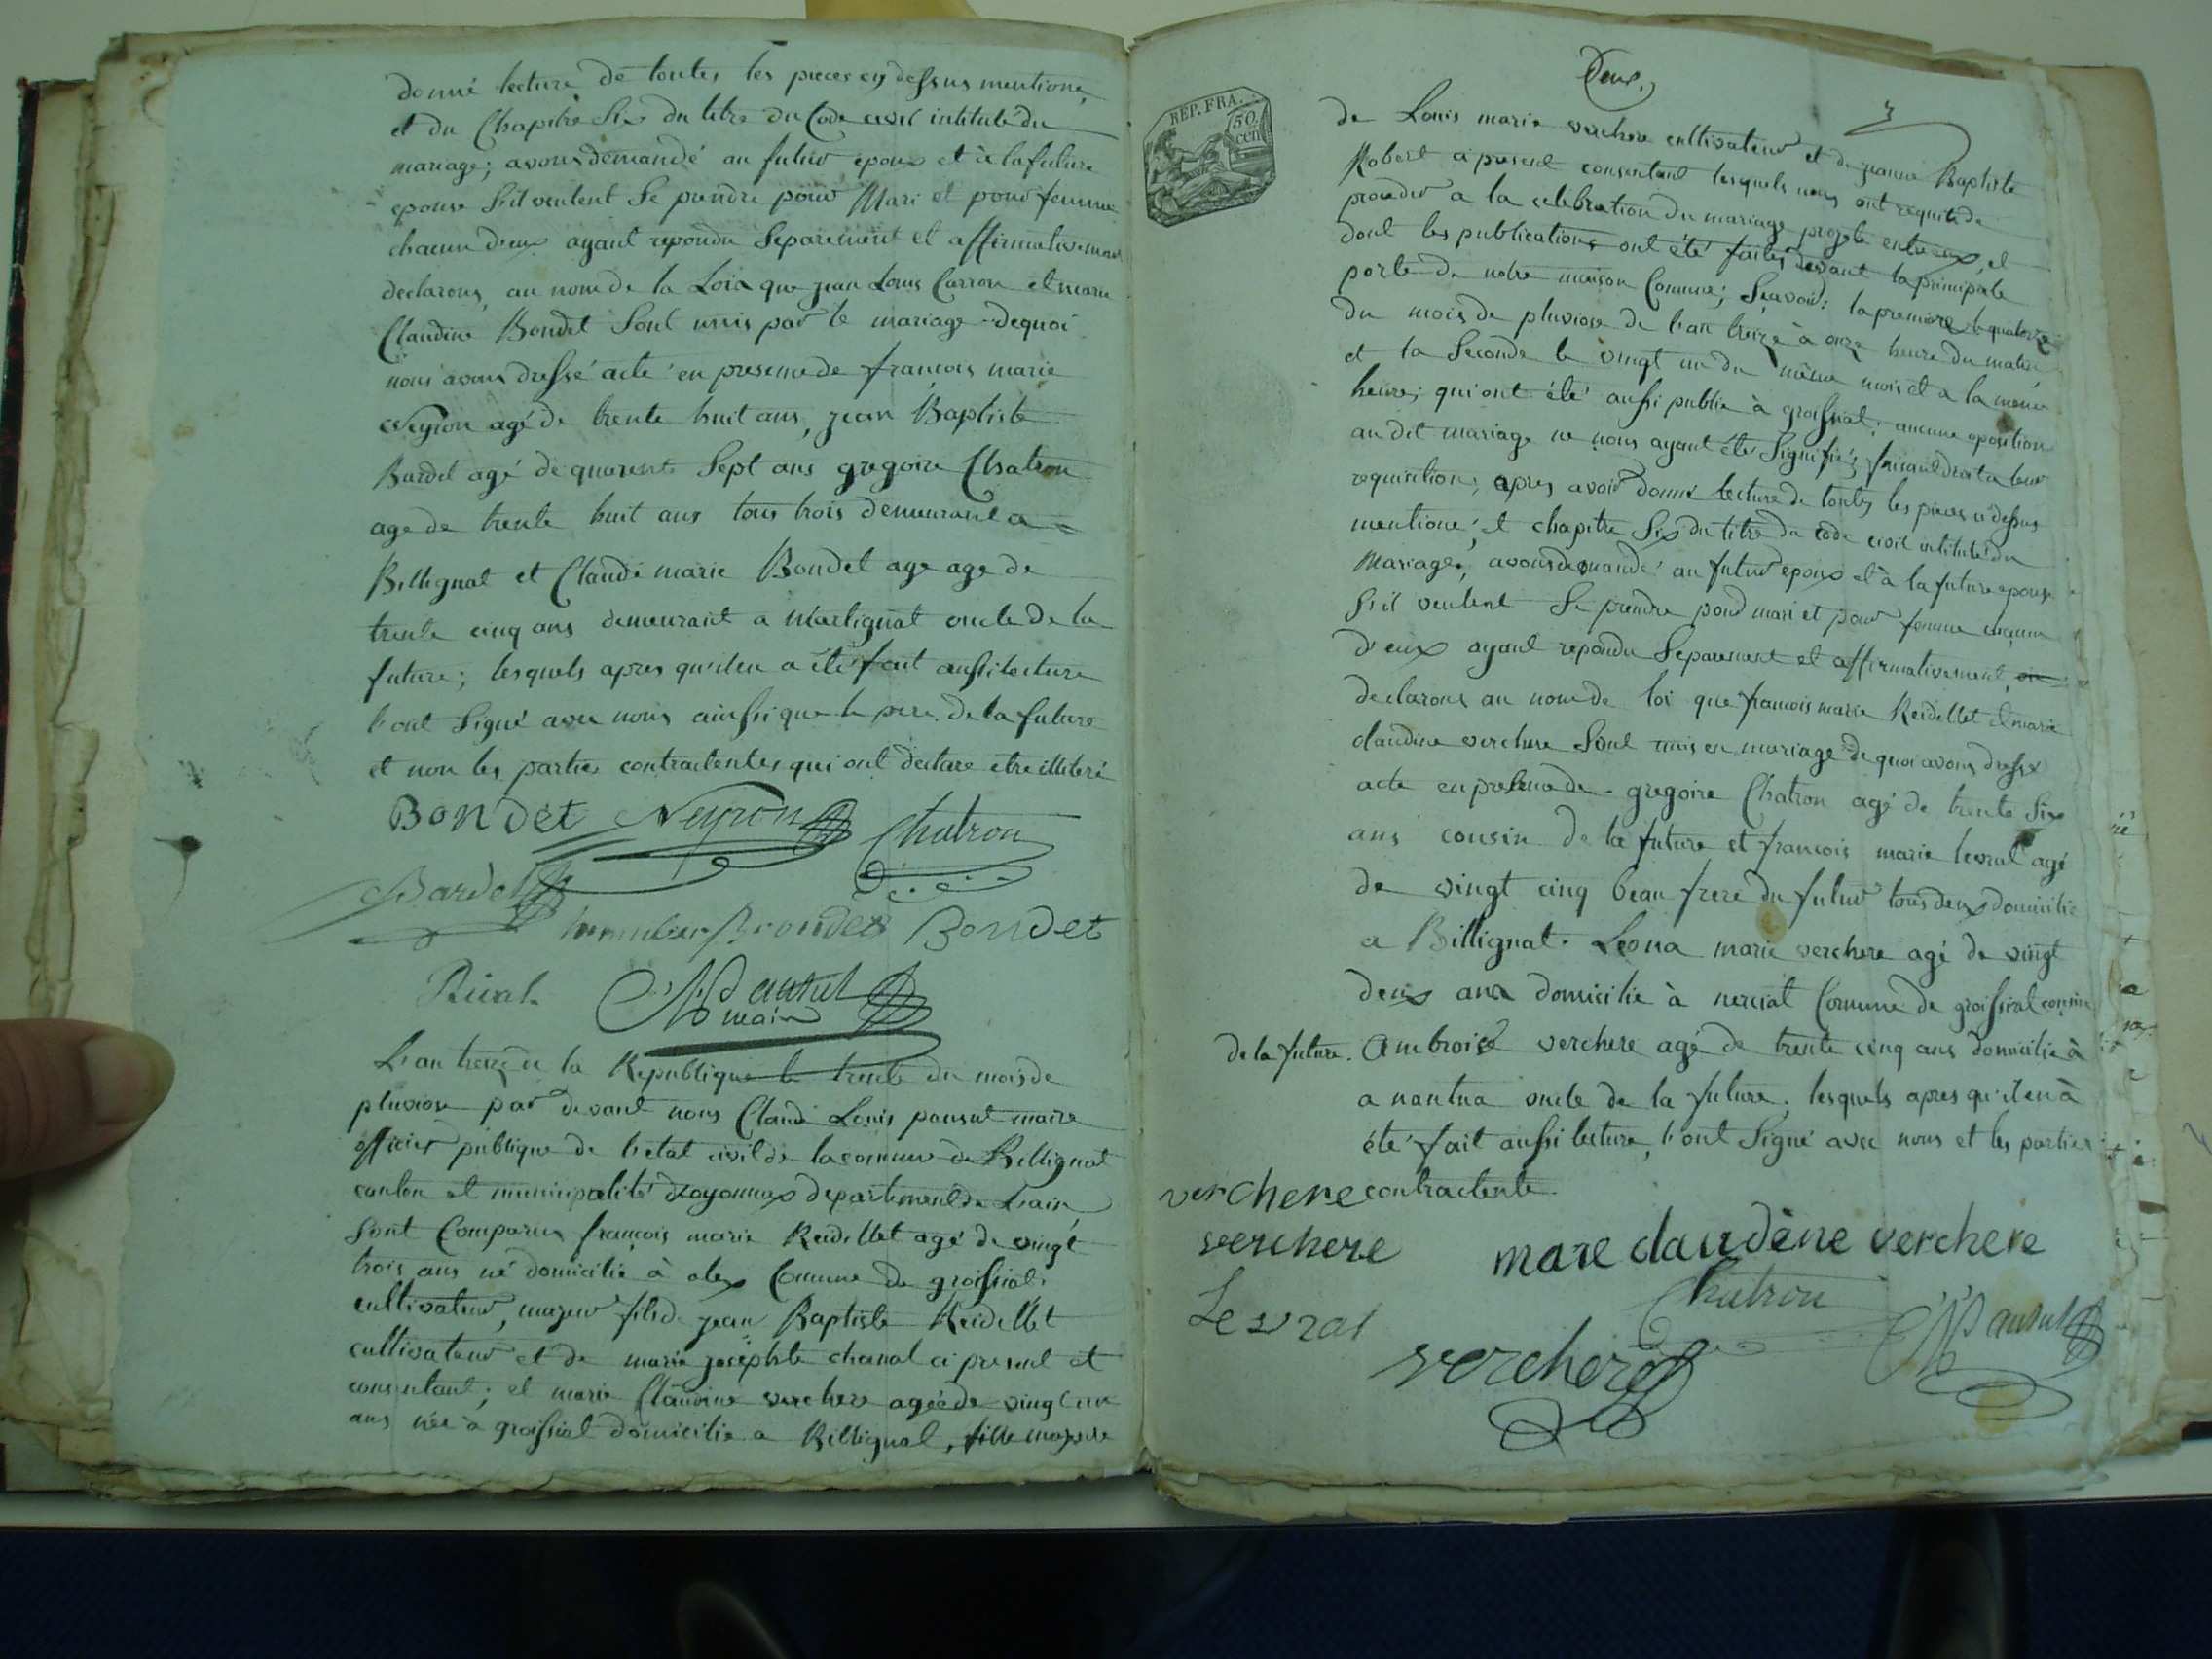 donné lecture de toutes les pieces cy dessus mentioné,
et du Chapitre Six du titre du Code civil intitulé du
mariage; avons demandé au futur epoux et à la future
epouse s'il veulent se prendre pour Mari et pour femme
chacun d'eux ayant repondu Separement et affirmativement
declarons, au nom de la Loix que jean Louis Carron et marie
Claudine Bondet Sont unis par le mariage dequoi
nous avons dressé acte en presence de françois marie
Neyron agé de trente huit ans, jean Baptiste
Bardet agé de quarente Sept ans gregoire Chatron
age de trente huit ans tous trois demeurant a
Billignat et Claude marie Bondet age age de
trente cinq ans demeurant a Martignat oncle de la
future; lesquels apres qu'il en a été fait aussi lecture
l'ont Signé avec nous ainssi que le pere de la future
et non les parties contractentes qui ont declare etre illiteré
Bondet Neyron Chatron
Bardet
Bondet Bondet
Rival
maire
L'an treize de la Republique le trente du mois de
pluviose par devant nous Claude Louis pansut maire
officier publique de l'etat civil de la comune de Billignat
canton et municipalité d'oyonnax departement de L'ain
Sont Comparus françois marie Reidellet agé de vingt
trois ans né domicilié à alex Comune de groissiat
cultivateur, majeur fils de jean Baptiste Reidellet
cultivateur et de marie josephte chanal ci present et
consentant; et marie Claudine verchere agée de vingt un
ans née a groissiat domicilie a Billignat, fille majeure
Deux
de Louis marie verchere cultivateur et de jeanne Baptiste
Robert ci present consentant lesquels nous ont requit de
proceder a la celebration du mariage projeté entre eux, et
dont les publications ont été faites devant la principale
porte de notre maison Comune; Sçavoir: la premiere le quatorze
du mois de pluviose de l'an treize à onze heure du matin
et la Seconde le vingt un du même mois et a la même
heure; qui ont été aussi publie à groissiat; aucune oposition
au dit mariage ne nous ayant été Signifiés, faisant droit a leur
requisition; apres avoir donné lecture de toutes les pieces ci dessus
mentione; et chapitre Six du titre du code civil intitulé du
Mariage, avons demandé au futur epoux et à la future epouse
s'il veulent Se prendre pour mari et pour femme chacun
d'eux ayant repondu Separement et affirmativement,
declarons au nom de loi que françois marie Reidellet et marie
claudine verchere Sont unis en mariage de quoi avons dressé
acte en presence de gregoire Chatron agé de trente Six
ans cousin de la future et françois marie levrat agé
de vingt cinq beau frere du futur tous deux domicilie
a Billignat. Leona marie verchere agé de vingt
deux ans domicilie à nerciat Comune de groissiat cousin
de la future. Ambroise verchere agé de trente cinq ans domicilie à
a nantua oncle de la future. lesquels apres qu'il en à
été fait aussi lecture, l'ont Signé avec nous et les parties
verchere contractente.
verchere mare claudène verchere
Levrat Chatron
verchere
REP. FRA.
50
cent